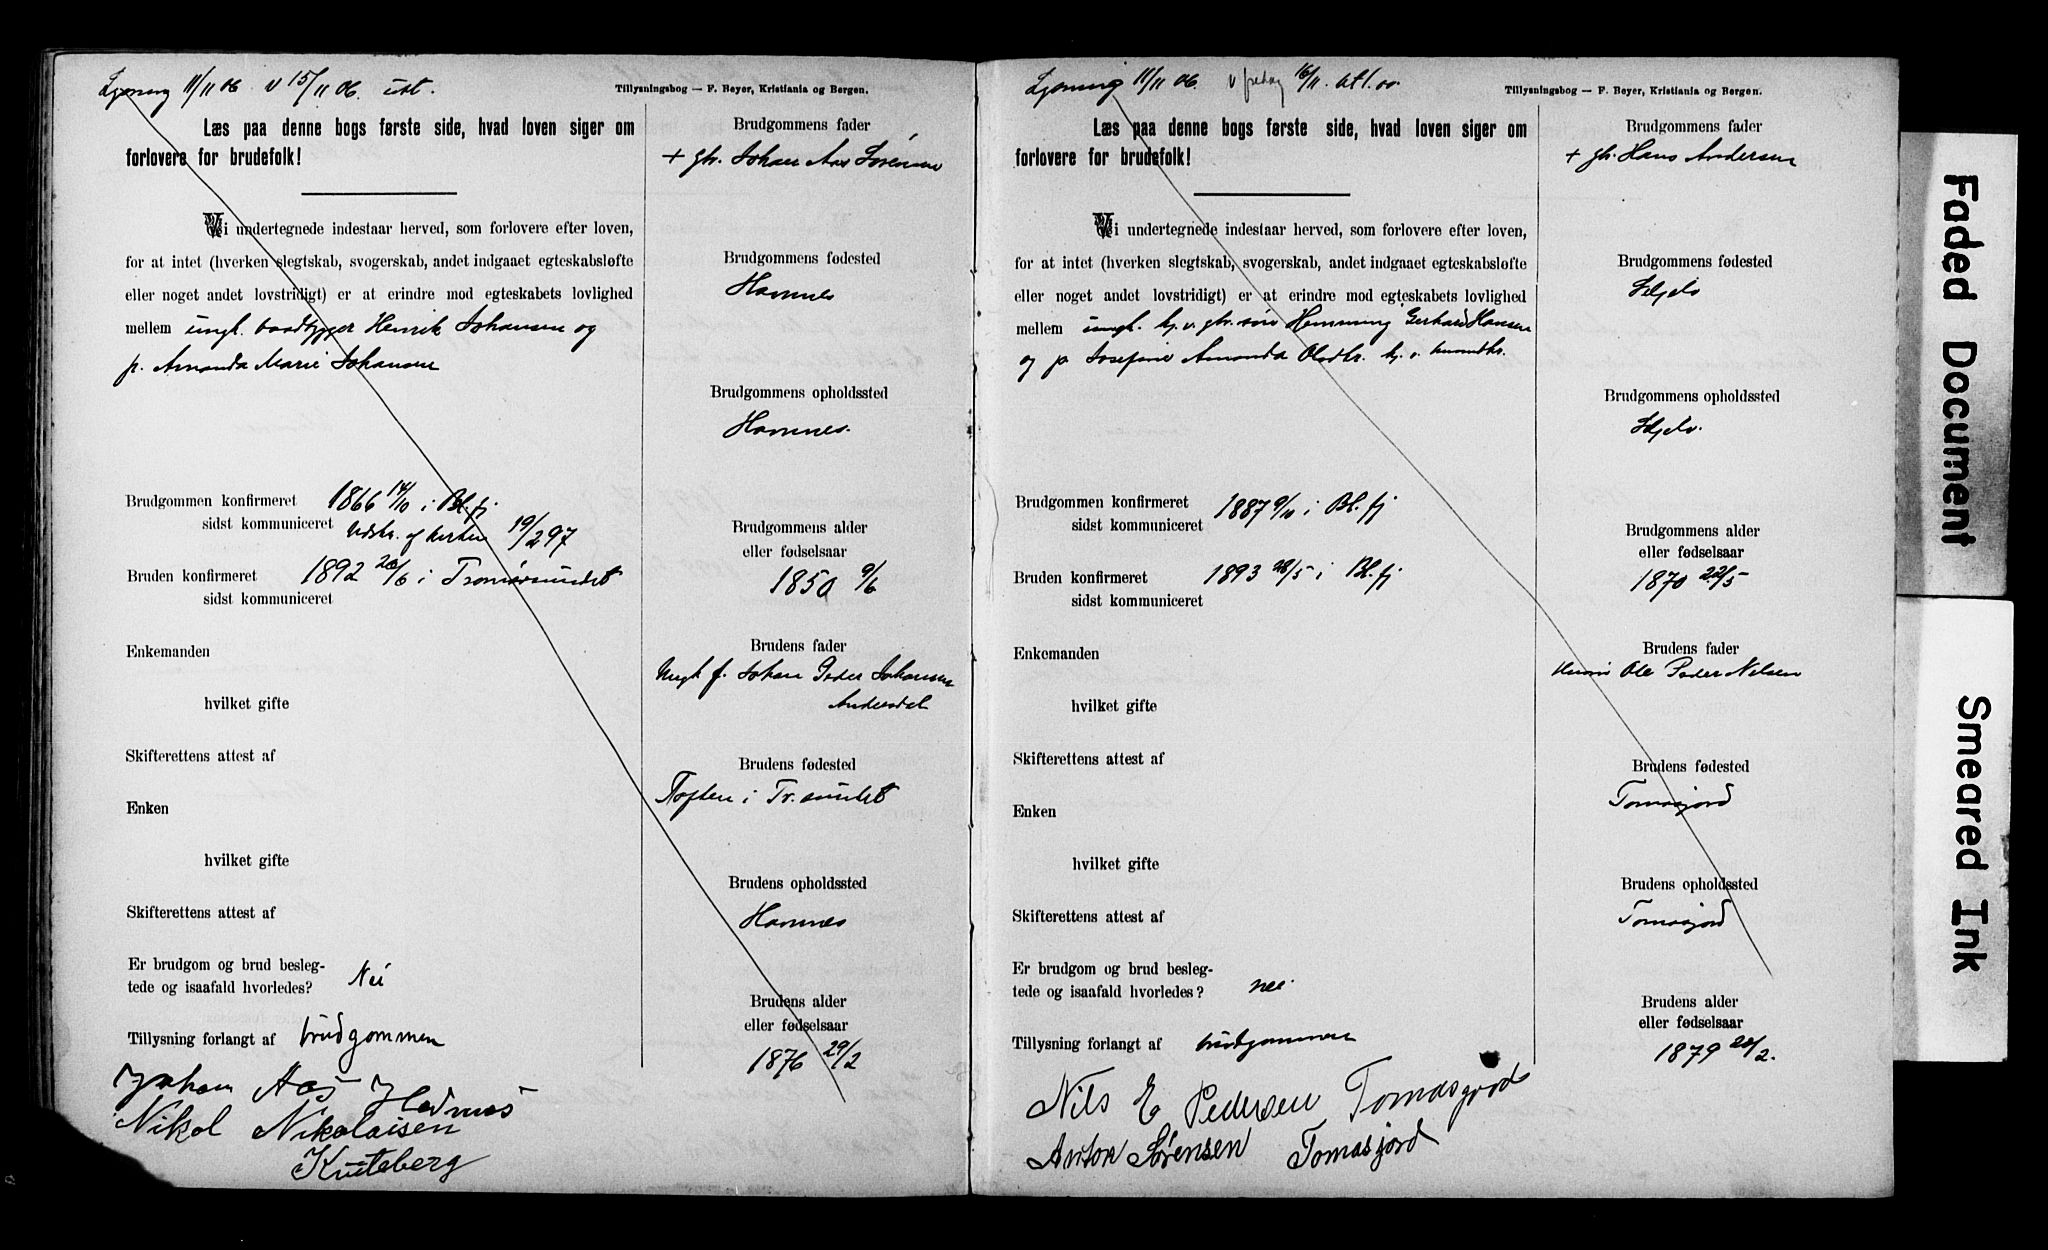 Lysning 11/11 06 v 15/11 06.
Tillysningsbog — F. Beyer, Kristiania og Bergen.
Læs paa denne bogs første side, hvad loven siger om
forlovere for brudefolk!
Vi undertegnede indestaar herved, som forlovere efter loven,
for at intet (hverken slegtskab, svogerskab, andet indgaaet egteskabsløfte
eller noget andet lovstridigt) er at erindre mod egteskabets lovlighed
mellem ungk. baadbygger Henrik Johansen og
p. Amanda Marie Johansen
Brudgommen konfirmeret 1866 14/10 i Bl.fj
sidst kommuniceret
Udtr. af kirken 19/2 97
Bruden konfirmeret 1892 26/6 i Tromsøsundet
sidst kommuniceret
Enkemanden
hvilket gifte
Skifterettens attest af
Enken
hvilket gifte
Skifterettens attest af
Er brudgom og brud besleg-
tede og isaafald hvorledes? Nei
Tillysning forlangt af brudgommen
Johan Aas Hamnes
Nikol Nikolaisen
Kviteberg
Brudgommens fader
+ gbr. Johan Aas Sørensen
Brudgommens fødested
Havnnes
Brudgommens opholdssted
Havnnes.
Brudgommens alder
eller fødselsaar
1850 9/6
Brudens fader
Ungk. f. Johan Peder Johansen
Andersdal
Brudens fødested
Toften i Tr.sundet
Brudens opholdssted
Havnnes
Brudens alder
eller fødselsaar
1876 29/2
Lysning 11/11 06. v fredag 16/11.
Tillysningsbog — F. Beyer, Kristiania og Bergen.
Læs paa denne bogs første side, hvad loven siger om
forlovere for brudefolk!
Vi undertegnede indestaar herved, som forlovere efter loven,
for at intet (hverken slegtskab, svogerskab, andet indgaaet egteskabsløfte
eller noget andet lovstridigt) er at erindre mod egteskabets lovlighed
mellem ungk. hj. v. gbr. søn Hemming Gerhard Hansen
og p Josefine Amanda Olsdtr. hj. v.
Brudgommen konfirmeret 1887 9/10 i Bl.fj
sidst kommuniceret
Bruden konfirmeret 1893 28/5 i Bl.fj
sidst kommuniceret
Enkemanden
hvilket gifte
Skifterettens attest af
Enken
hvilket gifte
Skifterettens attest af
Er brudgom og brud besleg-
tede og isaafald hvorledes? nei.
Tillysning forlangt af brudgommen
Nils E Pedersen Tomasgord
Anton Sørensen Tomasjord
Brudgommens fader
+ gbr. Hans Andersen
Brudgommens fødested
Seljelv
Brudgommens opholdssted
Seljelv.
Brudgommens alder
eller fødselsaar
1870 22/5
Brudens fader
Ole Peder Nilsen
Brudens fødested
Tomasjord
Brudens opholdssted
Tomasjord
Brudens alder
eller fødselsaar
1879 20/2.
Faded Document
Smeared Ink